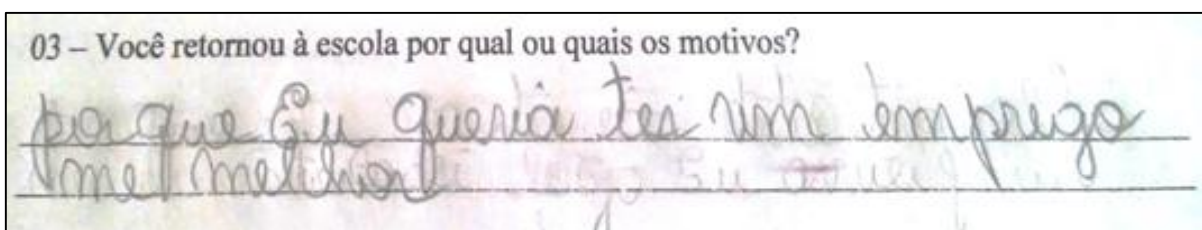 03 – Você retornou à escola por qual ou quais os motivos?
poque Eu queria ter um emprego
me melhor